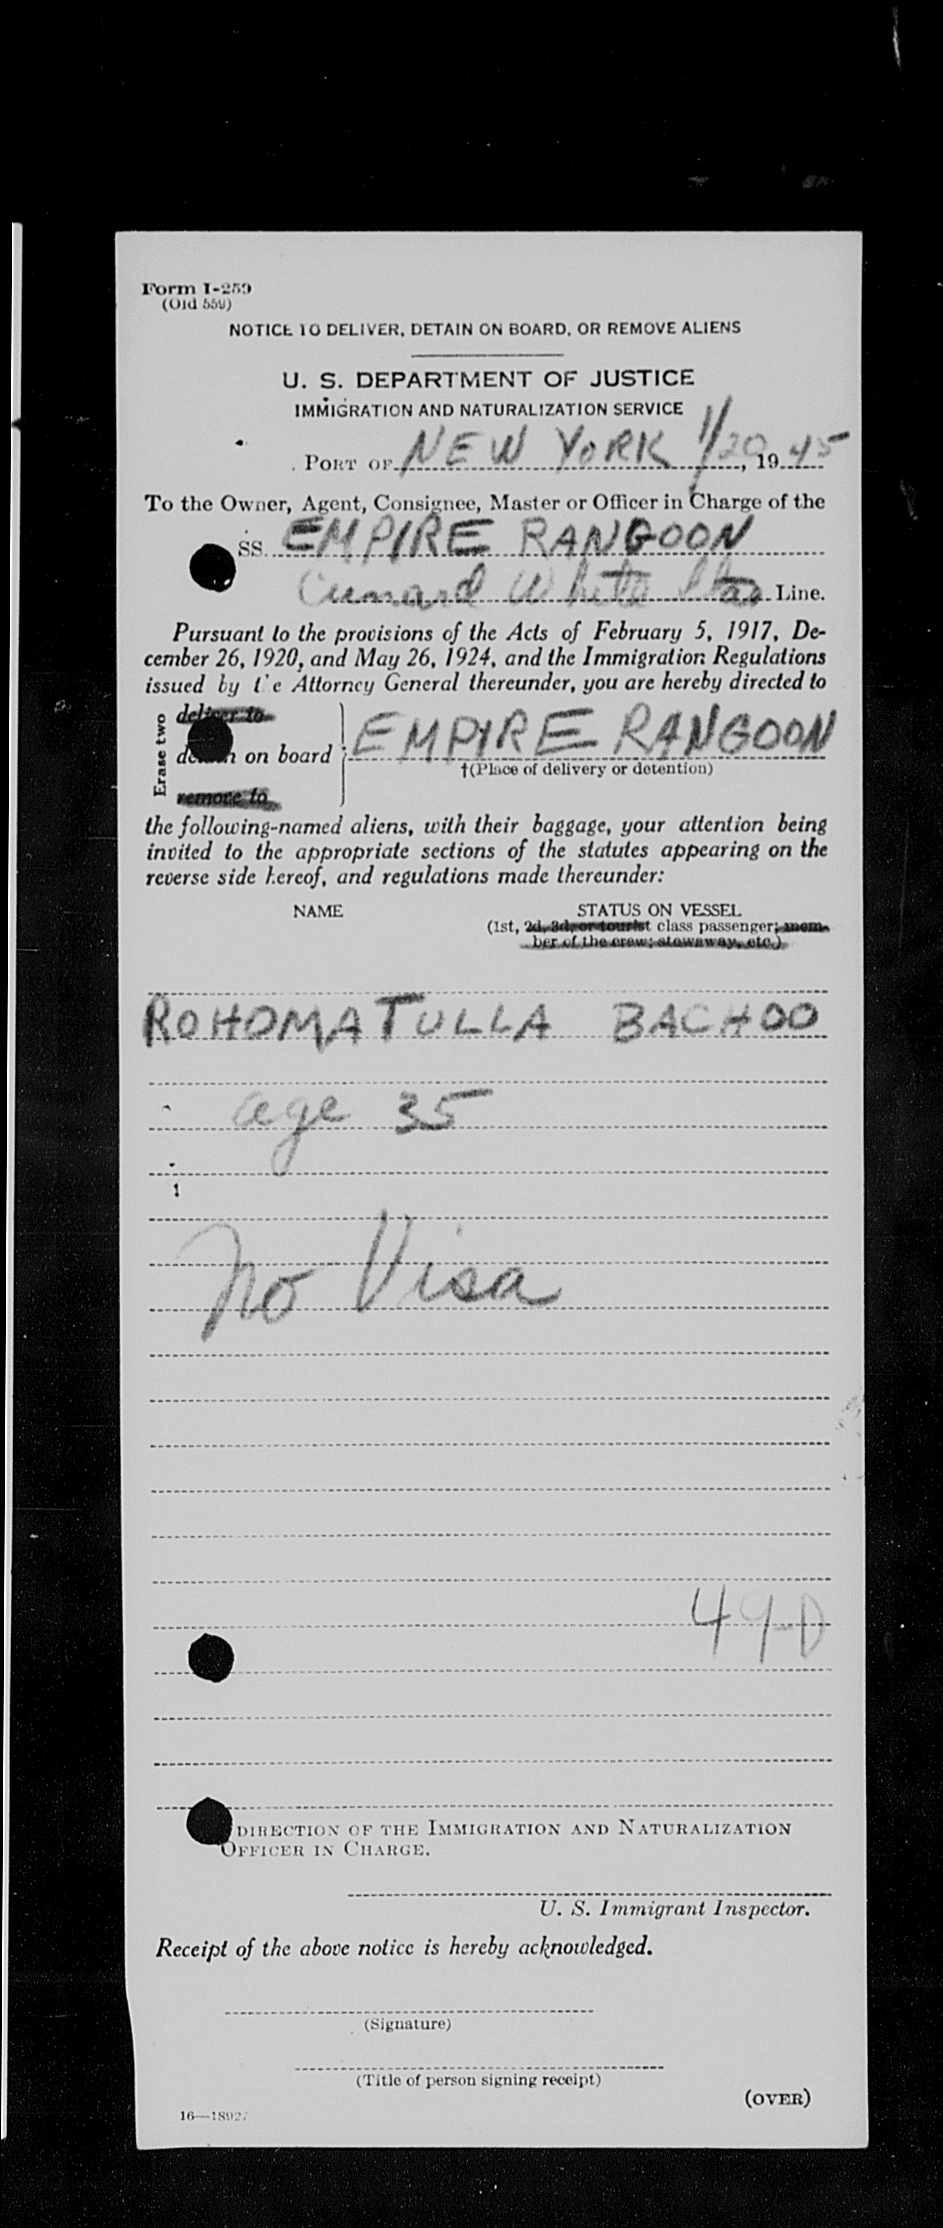 Form I-259
(Old 559)
NOTICE TO DELIVER, DETAIN ON BOARD, OR REMOVE ALIENS
U. S. DEPARTMENT OF JUSTICE
IMMIGRATION AND NATURALIZATION SERVICE
PORT OF NEW YORK 1/20, 1945
To the Owner, Agent, Consignee, Master or Officer in Charge of the
SS. EMPIRE RANGOON
Cunard White Star Line.
Pursuant to the provisions of the Acts of February 5, 1917, De-
cember 26, 1920, and May 26, 1924, and the Immigration Regulations
issued by the Attorney General thereunder, you are hereby directed to
Erase two
deliver to
detain on board EMPIRE RANGOON
†(Place of delivery or detention)
remove to
the following-named aliens, with their baggage, your attention being
invited to the appropriate sections of the statutes appearing on the
reverse side hereof, and regulations made thereunder:
NAME STATUS ON VESSEL
(1st, 2d, 3d, or tourist class passenger; mem-
ber of the crew; stowaway, etc.)
ROHOMATULLA BACHOO
age 35
No Visa
49-D
DIRECTION OF THE IMMIGRATION AND NATURALIZATION
OFFICER IN CHARGE.
U. S. Immigrant Inspector.
Receipt of the above notice is hereby acknowledged.
(Signature)
(Title of person signing receipt)
(OVER)